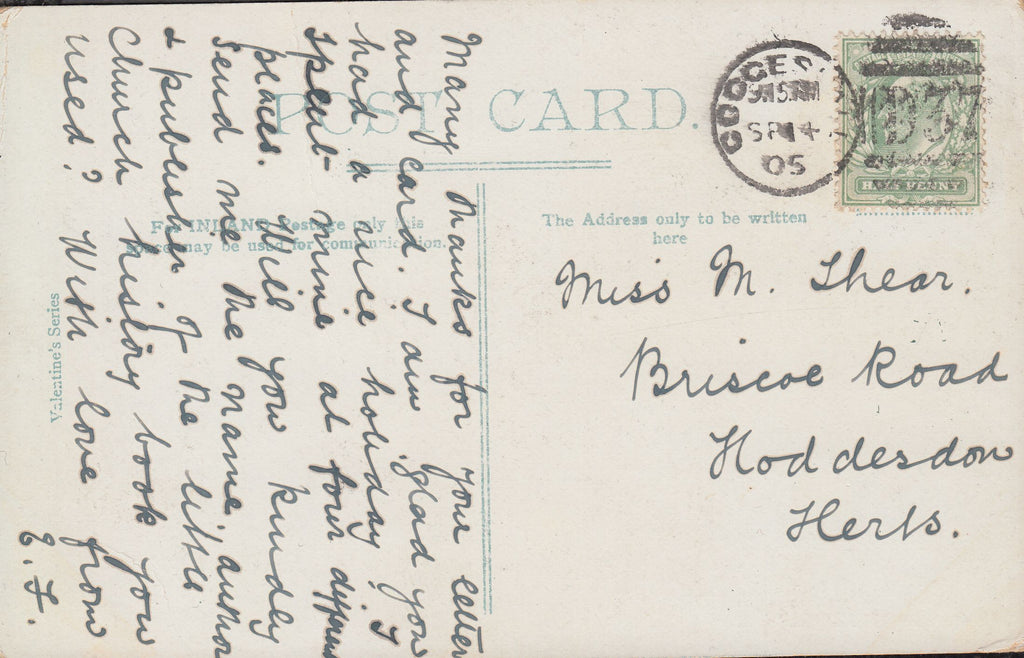 POST CARD.
For INLAND Postage only this
space may be used for communication.
The Address only to be written
here
Valentine's Series
COGGES
9 15 AM
SP 14
05
D37
HALF PENNY
Many thanks for your letter
and card. I am glad you
had a nice holiday. I
spent mine at four differnt
places. Will you kindly
send me the name, author
& publisher of the little
Church history book you
used? With love from
E. F.
Miss M. Shear.
Briscoe Road
Hoddesdon
Herts.